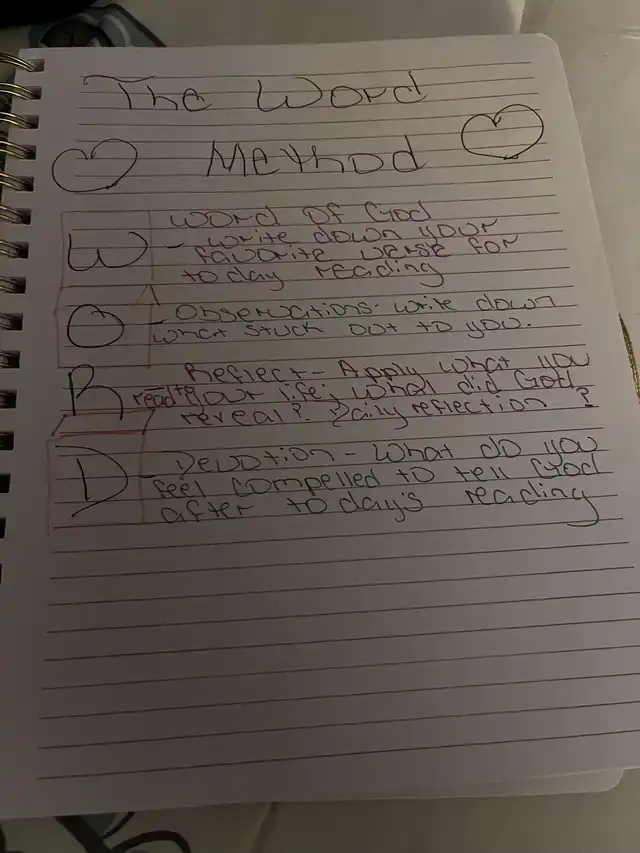 The Word
Method
Word Of God
W - write down your
favorite verse for
today reading
O - Observations- write down
what stuck out to you.
R Reflect - Apply what you
read to your life; what did God
reveal? Daily reflection?
D - Devotion - What do you
feel compelled to tell God
after today's reading